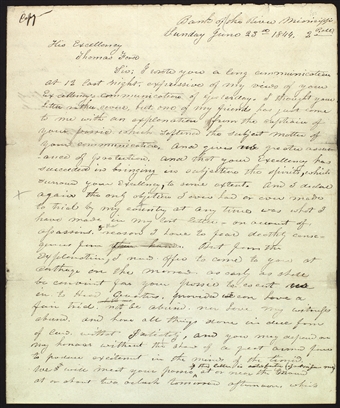 Copy
Bank of the River Mississippi
Sunday June 23rd 1844. 2
His Excellency
Thomas Ford
Sir; I wrote you a long communication
at 12 last night, expressive of my views of your
Excellency's communication of yesterday. I thought your
letter rather severe, but one of my friends has just come
to me with an explanation from the captain of
your posse which softened the subject matter of
your communication, and gives us greater assur-
ance of protection, and that your Excellency has
succeeded in bringing in subjection the spirits which
surround your Excellency to some extent. And I declare
again the only objection I ever had or ever made
to trial by my country at any time, was what I
have made in my last letter, on account of
assassins, & the reason I have to fear deathly conse-
quences from
But from the
explanation, I now offer to come to you at
Carthage on the morrow, as early as shall
be convenient for your posse to escort us
in to Head Quarters, provided we can have a
fair trial, not be abused nor have my witnesses
abused, and have all things done in due form
of law, without partiality, and you may depend on
my honour without the show of a great armed force
to produce excitement in the minds of the timid.
We will meet your posse,
at or near the Mound
at or about two o'clock tomorrow afternoon, which